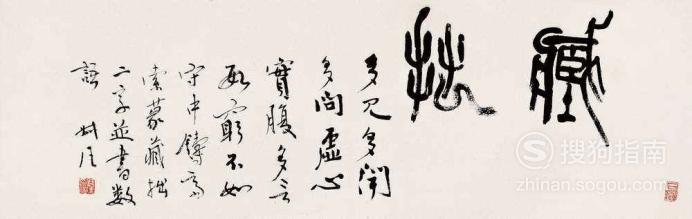 藏拙
多见多闻
多问虚心
實腹多言
数窮不如
守中鑄
索蒙藏拙
二字並書数
語
搜狗指南
zhinan.sogou.com